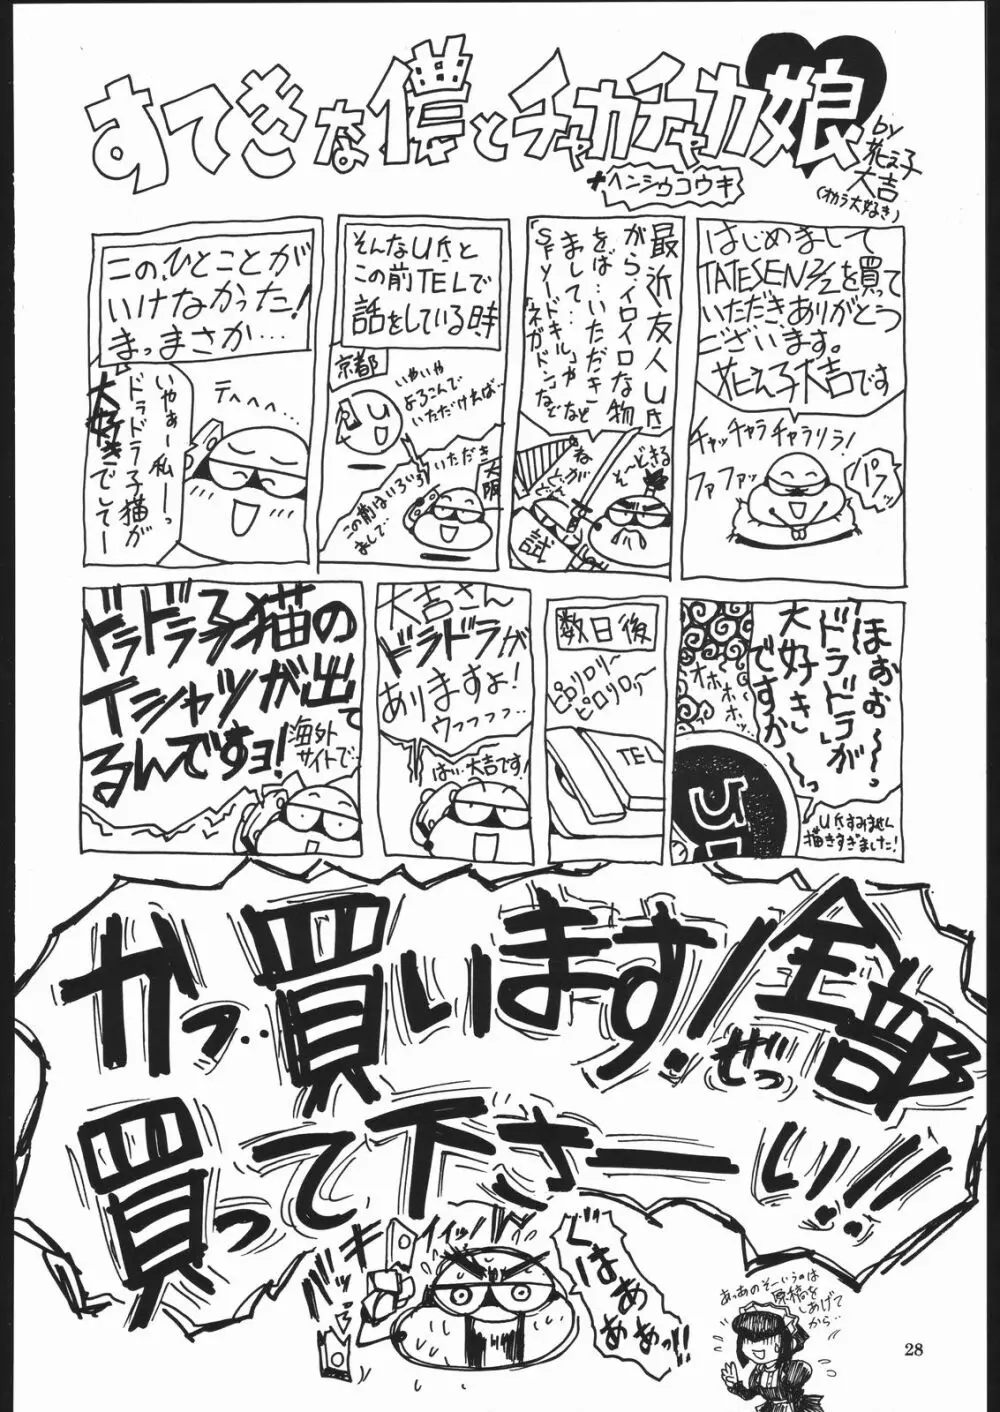 すてきな儂とチャカチャカ娘
by
花え子
大吉
(オカラ大好き)
+ヘンシュウコウキ
はじめまして
TATESEN 2/2を買って
いただきありがとう
ございます。
花え子大吉です
チャッチャラ チャラリラ!
ファファッ
パフッ
最近友人U氏
がら、イロイロな物
をば…いただき
まして…
「SFソードキル」や
「ネガドン」などなど
そ〜どきる
ねがどん
試
そんなU氏と
この前TELで
話をしている時、
京都
U氏
いやいや
よろこんで
いただければ…
大阪
この前はいろいろ
いただき
まして…
この、ひとことが
いけなかった!
まっまさか…
テヘヘヘ…
いやぁー私ーっ
ドラドラ子猫が
大好きでしてー
ほぉぉ〜っ
「ドラドラ」が
大好き
ですか〜っ
オホホホホッ
U氏すみません
描きすぎました!
数日後
ピロリロリ〜
ピロリロリ〜
TEL
大吉さん
ドラドラが
ありますょ!
ウフフフフ…
はい大吉です!
ドラドラ子猫の
Tシャツが出て
るんですョ!
海外
サイトで…
かっ‥買います!ぜっ全部
買って下さーい!!
イイッ
バキ
バッ
ぐはぁぁ
ああっ!!
あっあのそーいうのは
原稿を
しあげて
から…
28